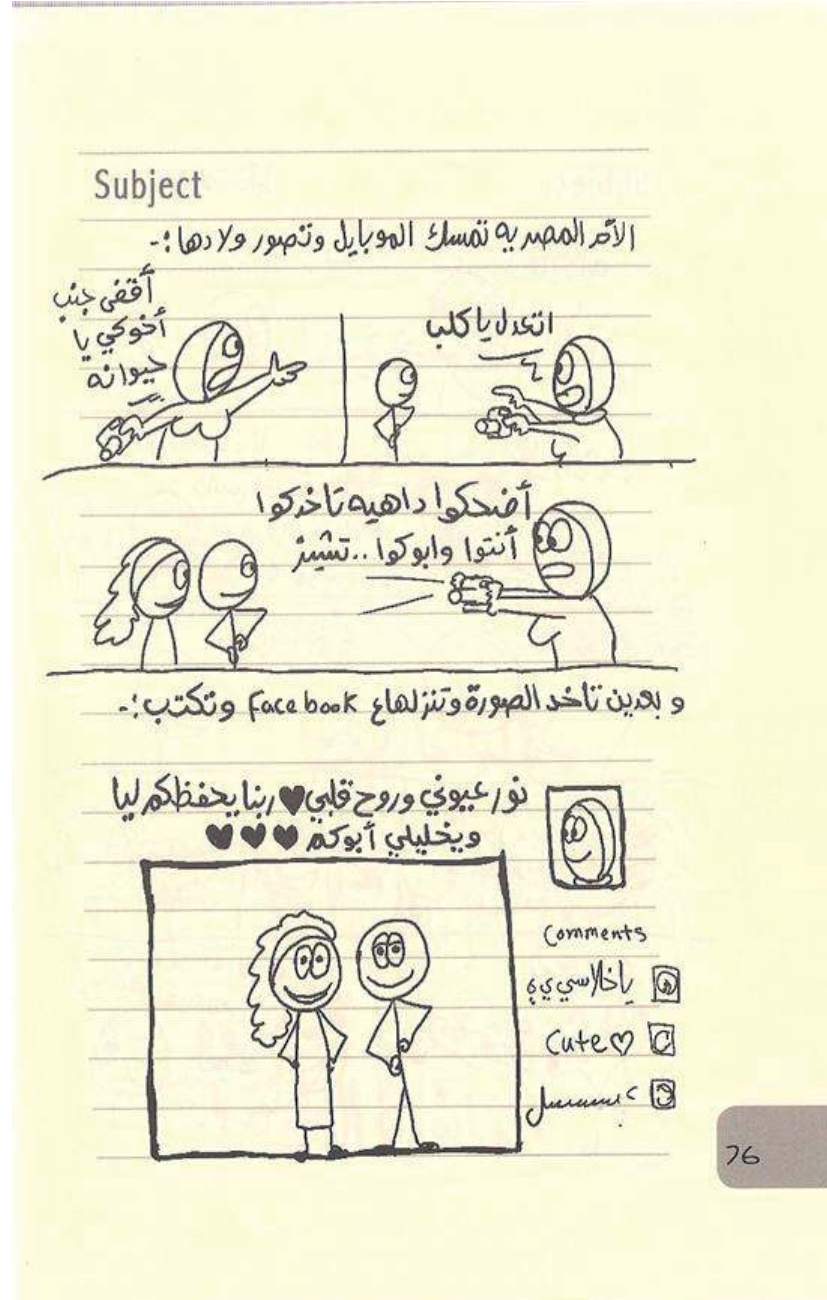 Subject
الأم المصريه تمسك الموبايل وتصور ولادها :-
اتعدل يا كلب
أقفى جنب
أخوكي يا
حيوانه
أضحكوا داهيه تاخدكوا
أنتوا وابوكوا .. تشييز
و بعدين تاخد الصورة وتنزلهاع Facebook وتكتب :-
نور عيوني وروح قلبي ♥ ربنا يحفظكم ليا
ويخليلي أبوكم ♥ ♥ ♥
Comments
ياخلاسيييي
Cute ♡
عسسسسل
76